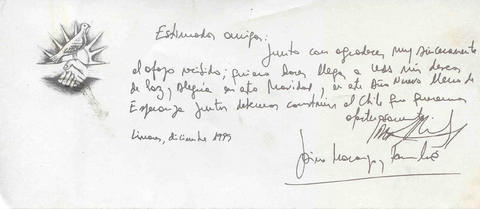 Estimados amigos:
Junto con agradecer muy sinceramente
el apoyo recibido; quiero hacer llegar a Uds mis deseos
de Paz y Alegría en esta Navidad y en este Año Nuevo lleno de
Esperanza Juntos debemos construir el Chile que queremos
Linares, diciembre 1989
y Familia